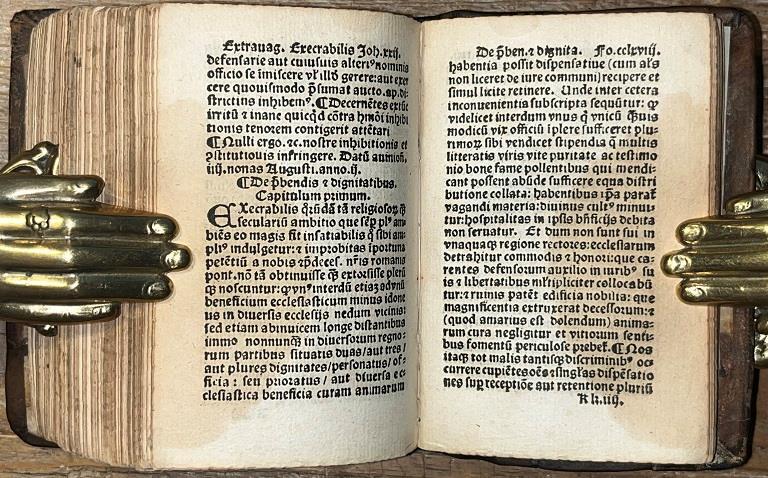 Extrauag. Execrabilis Joh.xxij.
defensarie aut cuiusuis alteriꝰ nominis
officio se īmiscere vl' illd gerere: aut exer
cere quouismodo p̄sumat aucto. ap. di-
strictius inhibemꝰ. ¶ Decernētes extūc
irritū ⁊ inane quicqd cōtra hmōi inhibi
tionis tenorem contigerit attētari
¶ Nulli ergo. ⁊c. nostre inhibitionis et
ꝯstitutiouis infringere. Datū auinioñ.
iiij. nonas Augusti. anno. ij.
¶ De p̄bendis ⁊ dignitatibus.
Capitulum primum.
EXecrabilis qrūdā tā religiosoꝝ ꝙ̄
seculariū ambitio que sēp plꝰ am-
biēs eo magis fit insatiabilis q̄ sibi am
pliꝰ indulgetur: ⁊ improbitas īportuna
petētiū a nobis ⁊ p̄decess. nr̄is romanis
pont. nō tā obtinuisse ꝙ̄ extorsisse plerū
ꝙ noscuntur: ꝙ vnꝰ interdū etiaz ad vnū
beneficium ecclesiasticum minus idone
us in diuersis ecclesijs nedum vicinis:
sed etiam abinuicem longe distantibus
immo nonnunꝙ̄ in diuersorum regno-
rum partibus situatis duas / aut tres /
aut plures dignitates / personatus / of-
ficia : seu prioratus / aut diuersa ec
clesiastica beneficia curam animarum
De p̄ben. ⁊ dignita. Fo. cclxviij.
habentia possit dispensatiue (cum als
non liceret de iure communi) recipere et
simul licite retinere. Unde inter cetera
inconuenientia subscripta sequūtur: ꝙ
videlicet interdum vnus ꝙ vnicū ꝙ̄uis
modicū vix officiū īplere sufficeret plu-
rimoꝝ sibi vendicet stipendia q̄ multis
litteratis viris vite puritate ac testimo
nio bone fame pollentibus qui mendi-
cant possent abūde sufficere equa distri
butione collata: habentibus ip̄a parat
vagandi materia: diuinus cultꝰ minui
tur: hospitalitas in ipsis bn̄ficijs debita
non seruatur. Et dum non sunt sui in
vnaquaꝙ regione rectores: ecclesiarum
detrahitur commodis ⁊ honori: que ca-
rentes defensorum auxilio in iuribꝰ su
is ⁊ libertatibus ml'tipliciter collocabū
tur: ⁊ ruinis patēt edificia nobilia: que
magnificentia extruxerat decessorum: ⁊
(quod amarius est dolendum) anima-
rum cura negligitur et vitiorum senti-
bus fomentū periculose prebet. ¶ Nos
itaꝙ tot malis tantisꝙ discriminibꝰ oc
currere cupiētes oēs ⁊ sing'las dispēsatio
nes sup receptiōe aut retentione pluriū
Kk. iiij.